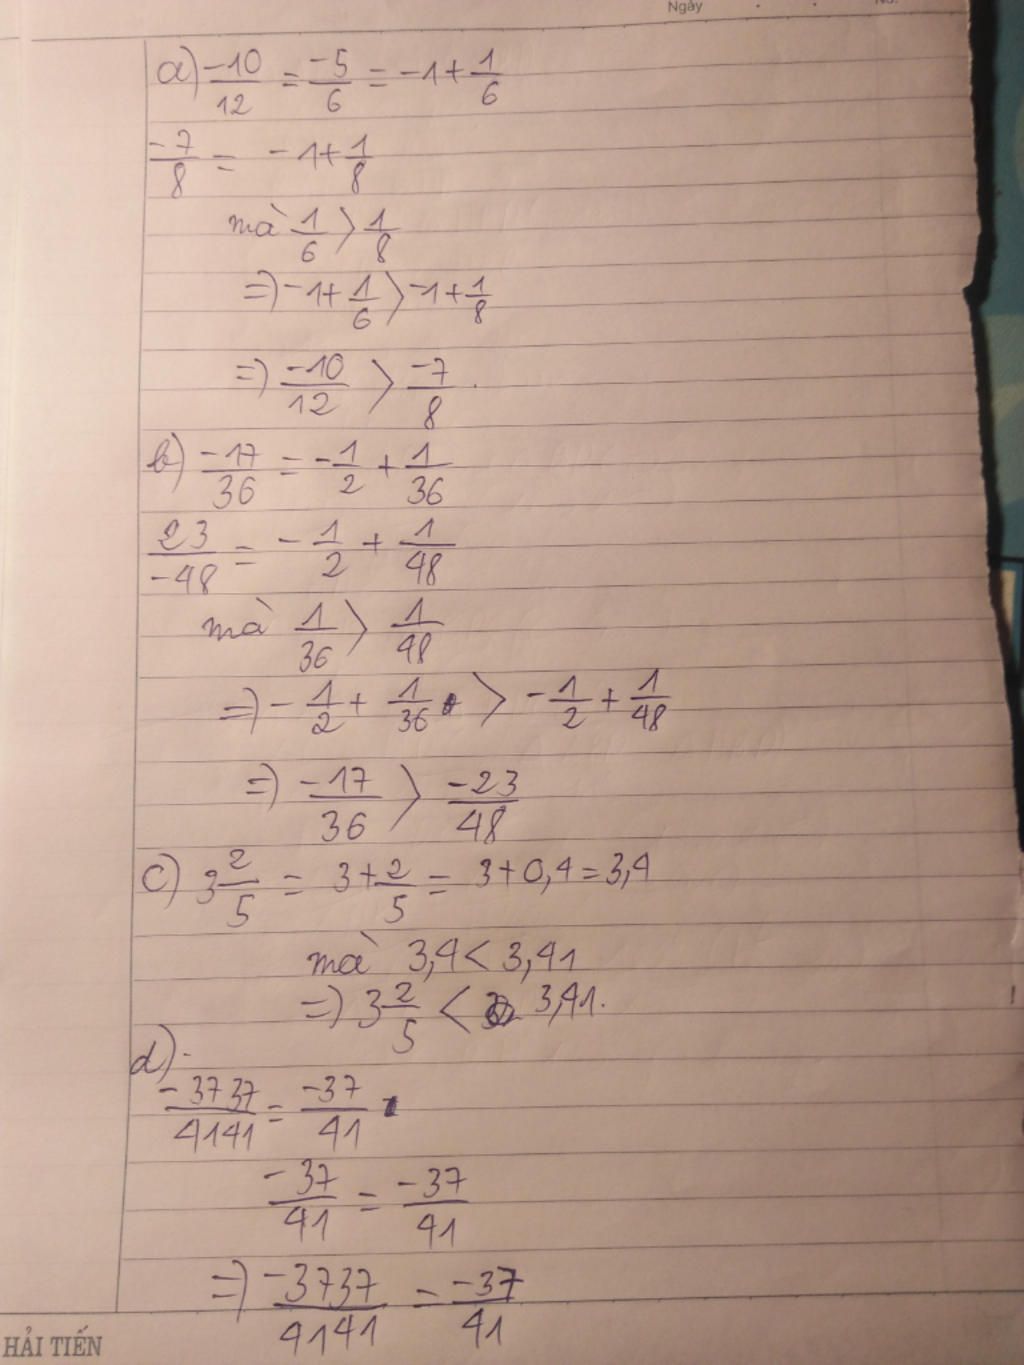 Ngày
No.
a) -10/12 = -5/6 = -1 + 1/6
-7/8 = -1 + 1/8
mà 1/6 > 1/8
=) -1 + 1/6 > -1 + 1/8
=) -10/12 > -7/8.
b) -17/36 = -1/2 + 1/36
23/-48 = -1/2 + 1/48
mà 1/36 > 1/48
=) -1/2 + 1/36 > -1/2 + 1/48
=) -17/36 > -23/48
c) 3 2/5 = 3 + 2/5 = 3 + 0,4 = 3,4
mà 3,4 < 3,41
=) 3 2/5 < 3,41.
d)
-3737/4141 = -37/41
-37/41 = -37/41
=) -3737/4141 = -37/41
HẢI TIẾN